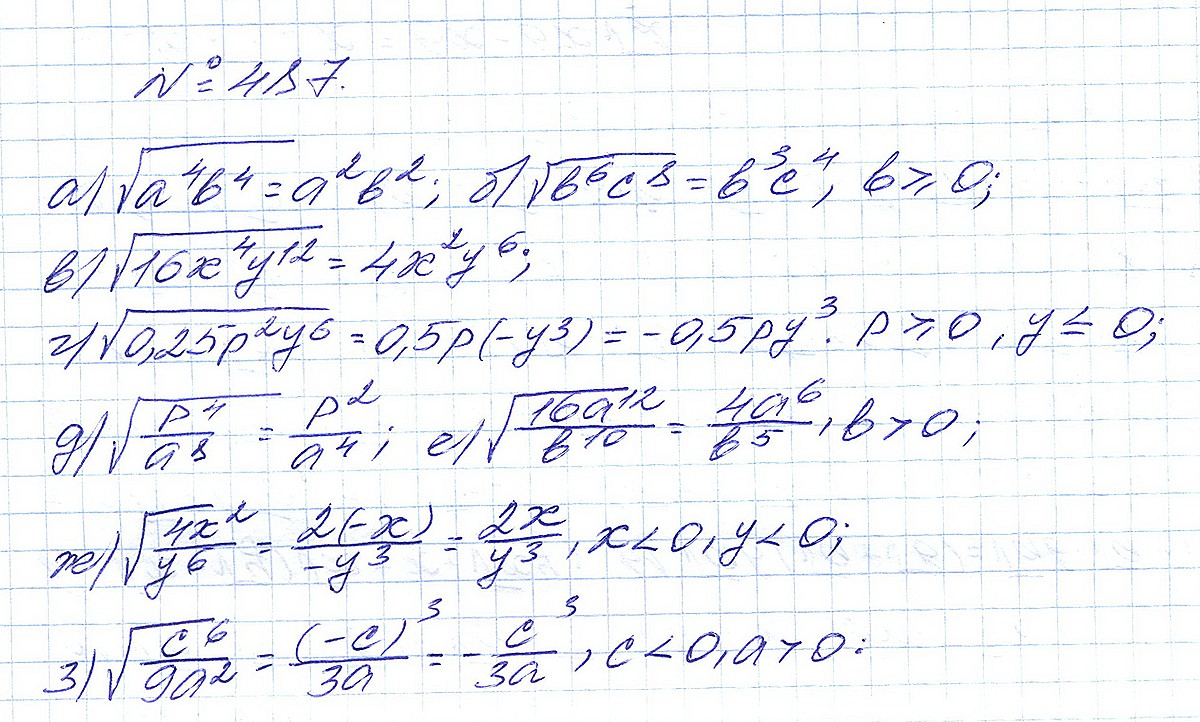 № 487.
а) √(a⁴b⁴) = a²b²; б) √(b⁶c⁸) = b³c⁴, b ≥ 0;
в) √(16x⁴y¹²) = 4x²y⁶;
г) √(0,25p²y⁶) = 0,5p(-y³) = -0,5py³. p ≥ 0, y ≤ 0;
д) √(p⁴/a⁸) = p²/a⁴; е) √(16a¹²/b¹⁰) = 4a⁶/b⁵, b > 0;
ж) √(4x²/y⁶) = 2(-x)/-y³ = 2x/y³, x < 0, y < 0;
з) √(c⁶/9a²) = (-c)³/3a = -c³/3a, c < 0, a > 0.